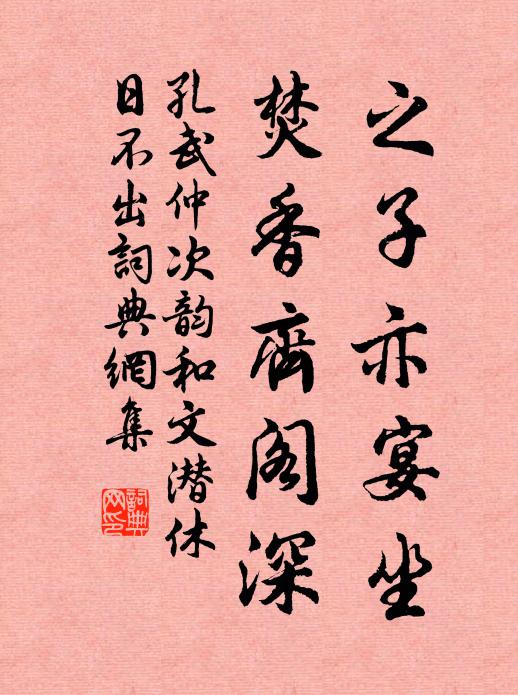 之子亦宴坐
焚香齊阁深
孔武仲次韵和文潜休
日不出詞典網集
詞典网印